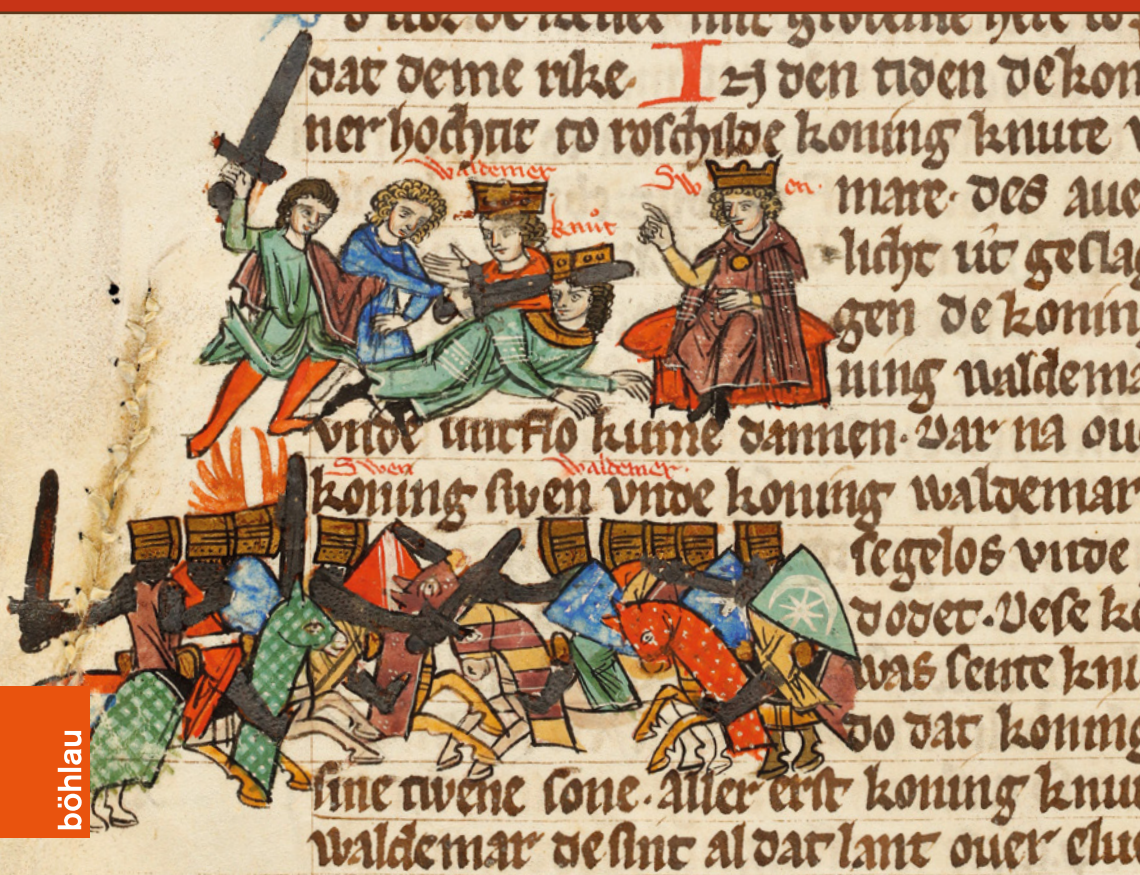 dat deme rike. In den tiden de kon
ner hochtit to roschilde koning knute v
Waldemer
Sw en.
knut
mare. des aue
licht ut geslag
gen de konin
ning waldema
vnde untflo kume dannen. Dar na ou
Swen
Waldemer.
koning swen vnde koning waldemar
segelos vnde
dodet. Dese ko
was sente knu
do dat koning
sine twene sone. aller erst koning knu
waldemar de sint al dat lant ouer elue
böhlau